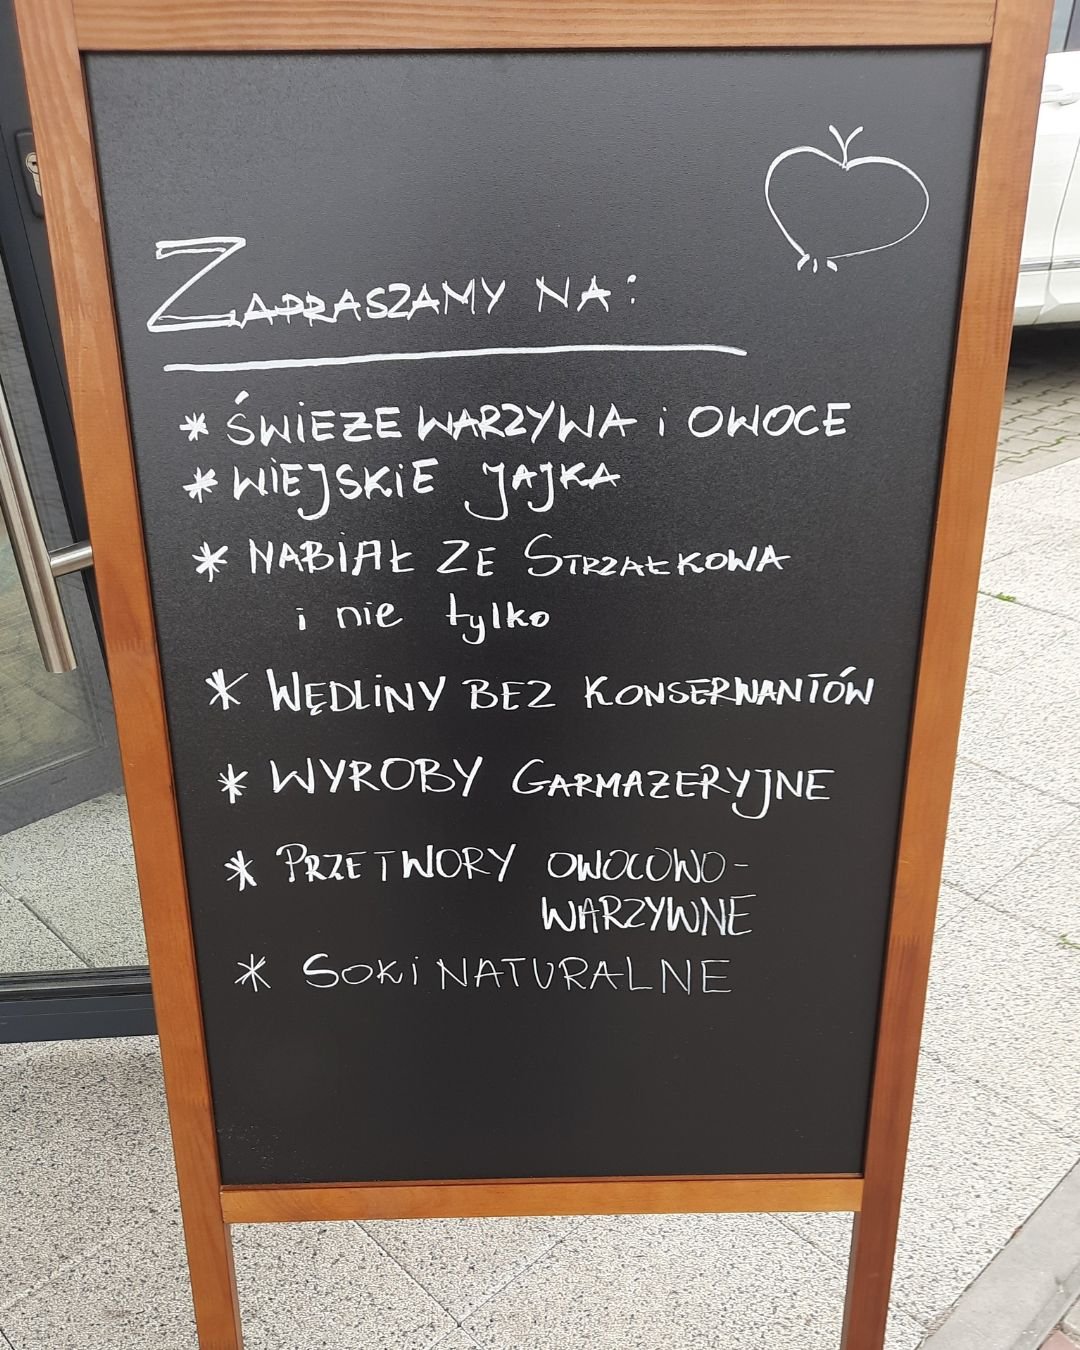 ZAPRASZAMY NA:
* ŚWIEŻE WARZYWA i OWOCE
* WIEJSKIE JAJKA
* NABIAŁ ZE STRZAŁKOWA
i nie tylko
* WĘDLINY BEZ KONSERWANTÓW
* WYROBY GARMAŻERYJNE
* PRZETWORY OWOCOWO-
WARZYWNE
* SOKI NATURALNE